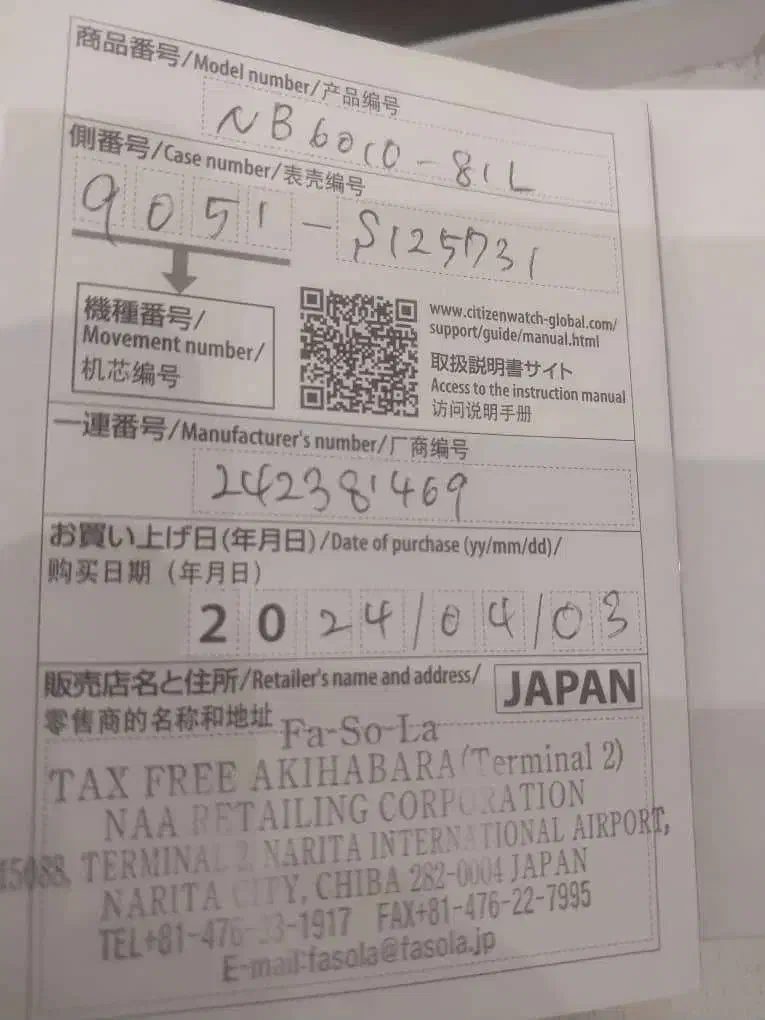 商品番号/Model number/产品编号
NB6010-81L
側番号/Case number/表壳编号
9051-S125731
機種番号/
Movement number/
机芯编号
www.citizenwatch-global.com/
support/guide/manual.html
取扱説明書サイト
Access to the instruction manual
访问说明手册
一連番号/Manufacturer's number/厂商编号
242381469
お買い上げ日(年月日)/Date of purchase (yy/mm/dd)/
购买日期（年月日）
2024/04/03
販売店名と住所/Retailer's name and address/
零售商的名称和地址
JAPAN
Fa-So-La
TAX FREE AKIHABARA(Terminal 2)
NAA RETAILING CORPORATION
TERMINAL 2, NARITA INTERNATIONAL AIRPORT,
NARITA CITY, CHIBA 282-0004 JAPAN
TEL+81-476-33-1917 FAX+81-476-22-7995
E-mail:fasola@fasola.jp